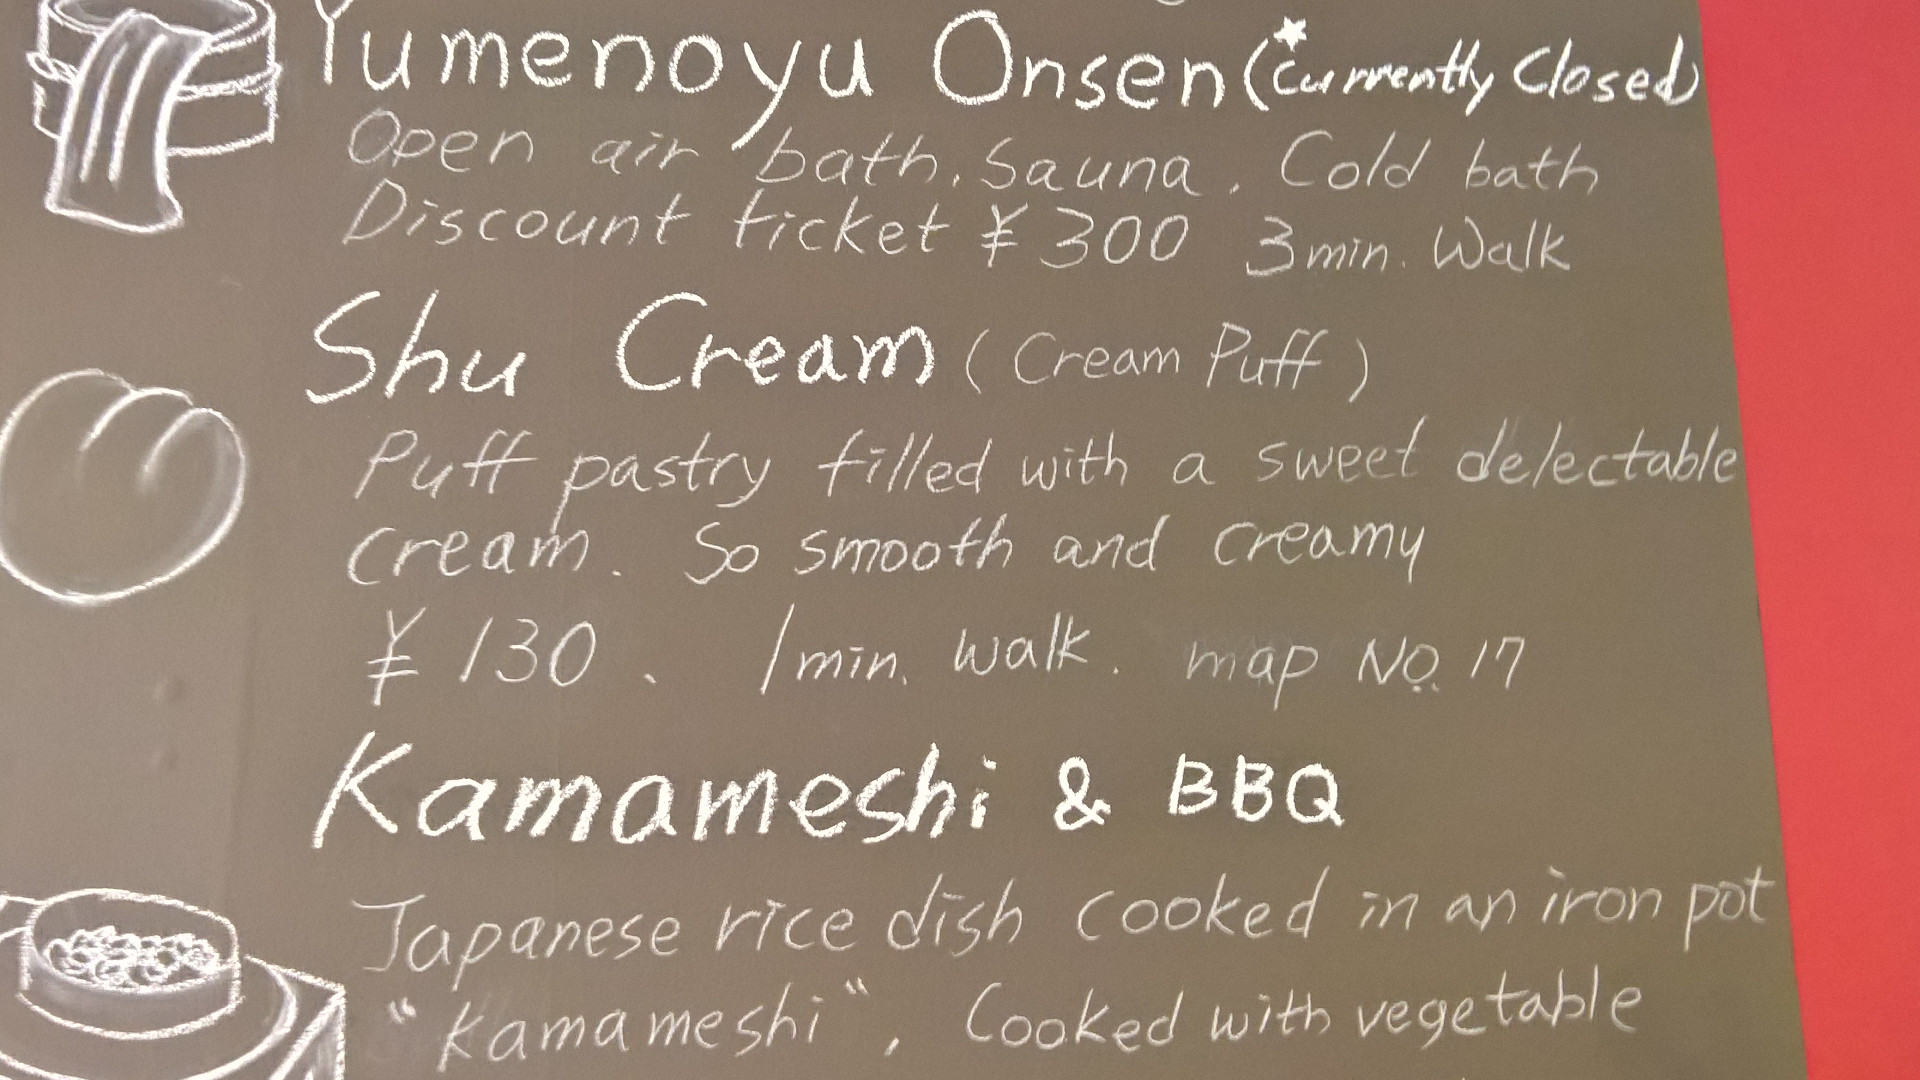 Yumenoyu Onsen (☆Currently Closed)
Open air bath. Sauna. Cold bath
Discount ticket ¥300 3min. Walk
Shu Cream (Cream Puff)
Puff pastry filled with a sweet delectable
cream. So smooth and creamy
¥130. 1min. walk. map No. 17
Kamameshi & BBQ
Japanese rice dish cooked in an iron pot
"Kamameshi", Cooked with vegetable